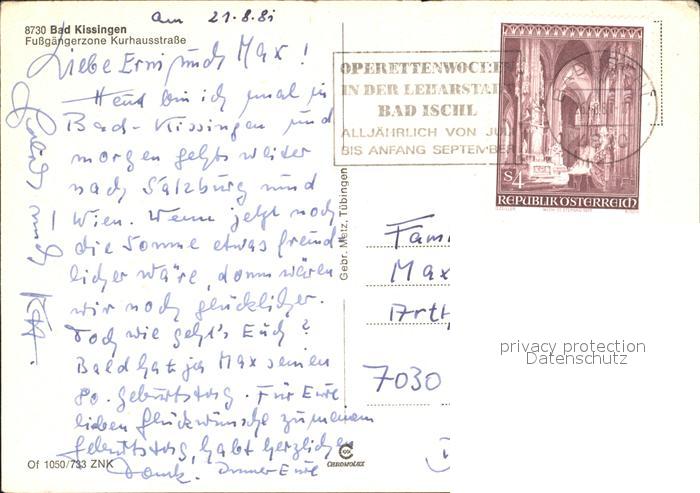 am 21.8.81
8730 Bad Kissingen
Fußgängerzone Kurhausstraße
Liebe Erni und Max!
Heut bin ich mal in
Bad-Kissingen und
morgen geht's weiter
nach Salzburg und
Wien. Wenn jetzt noch
die Sonne etwas freund
licher wäre, dann wären
wir noch glücklicher.
Doch wie geht's Euch?
Bald hat ja Max seinen
80. Geburtstag. Für Eure
lieben Glückwünsche zu meinem
Geburtstag, habt herzlichen
Dank. Immer Eure
und
Of 1050/733 ZNK
CHROMOLUX
Gebr. Metz, Tübingen
OPERETTENWOCHEN
IN DER LEHARSTADT
BAD ISCHL
ALLJÄHRLICH VON JULI
BIS ANFANG SEPTEMBER
S4
REPUBLIK ÖSTERREICH
Fam.
Max
7030
privacy protection
Datenschutz